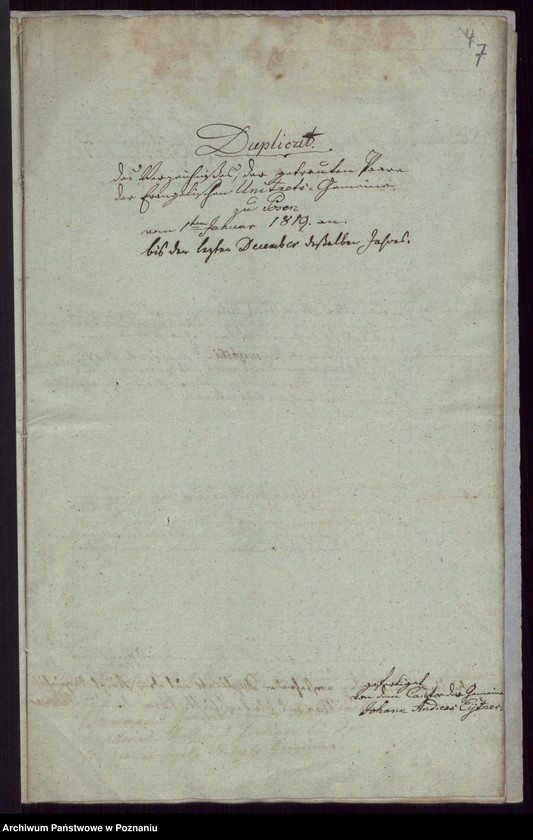 47
Duplicat.
des Verzeichnißes, der getrauten Paare
der Evangelischen Unitaets-Gemeine
zu Posen
vom 1ten Januar 1819. an.
bis den lezten December desselben Jahres.
gefertiget
von dem Cantor der Gemeine
Johann Andreas
Archiwum Państwowe w Poznaniu